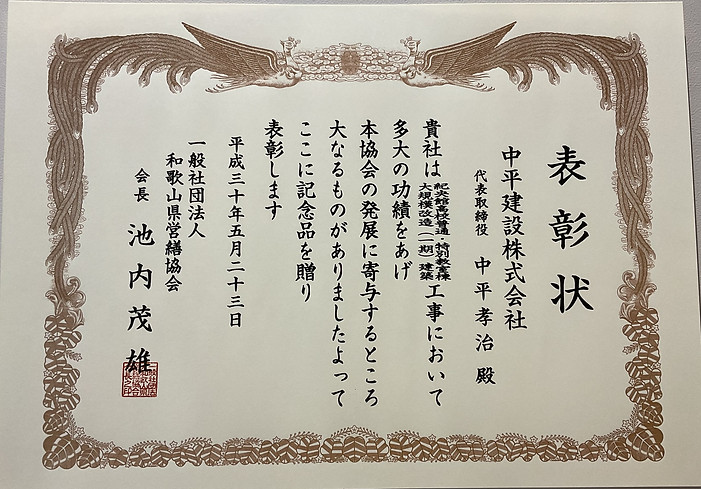 表彰状
中平建設株式会社
代表取締役 中平孝治 殿
貴社は紀央館高校普通・特別教室棟大規模改造（一期）建築工事において
多大の功績をあげ
本協会の発展に寄与するところ
大なるものがありましたよって
ここに記念品を贈り
表彰します
平成三十年五月二十三日
一般社団法人
和歌山県営繕協会
会長 池内茂雄